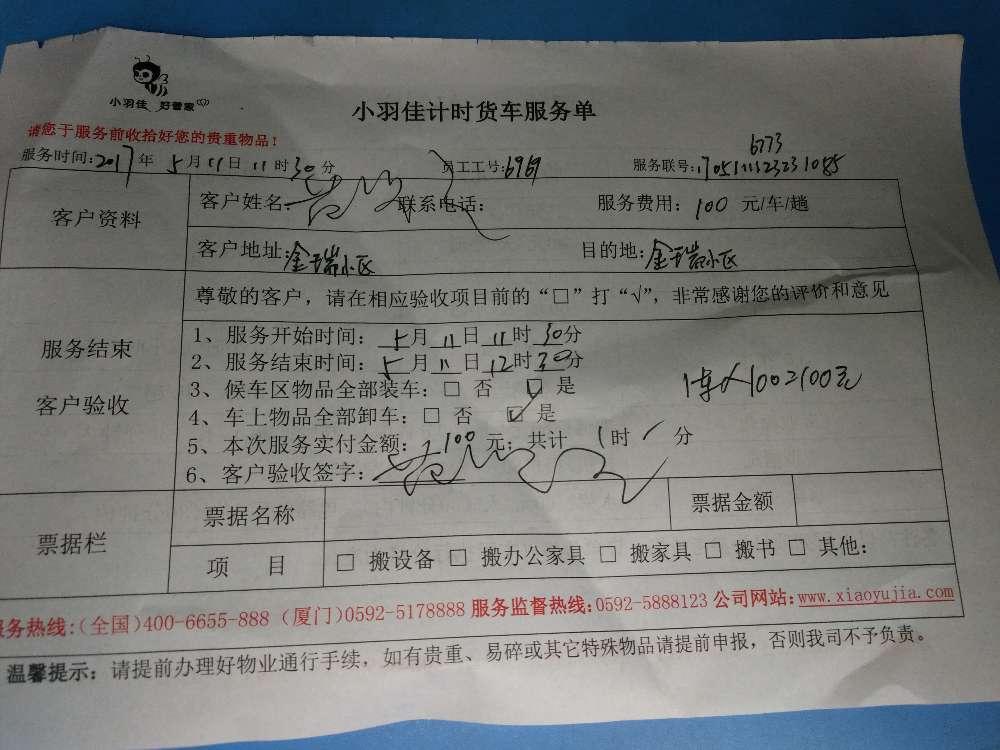 小羽佳 好管家
小羽佳计时货车服务单
请您于服务前收拾好您的贵重物品!
6773
服务时间:2017年5月11日11时30分 员工工号:6969 服务联号:
客户资料
客户姓名: 联系电话: 服务费用:100元/车/趟
客户地址:金瑞小区 目的地:金瑞小区
服务结束
客户验收
尊敬的客户，请在相应验收项目前的“□”打“√”，非常感谢您的评价和意见
1、服务开始时间:5月11日11时30分
2、服务结束时间:5月11日12时30分
3、候车区物品全部装车:□ 否 □ 是
4、车上物品全部卸车:□ 否 ☑ 是
5、本次服务实付金额:100元；共计1时 分
6、客户验收签字:
票据栏
票据名称 票据金额
项 目 □ 搬设备 □ 搬办公家具 □ 搬家具 □ 搬书 □ 其他:
务热线:(全国)400-6655-888 (厦门)0592-5178888 服务监督热线:0592-5888123 公司网站:www.xiaoyujia.com
温馨提示:请提前办理好物业通行手续，如有贵重、易碎或其它特殊物品请提前申报，否则我司不予负责。